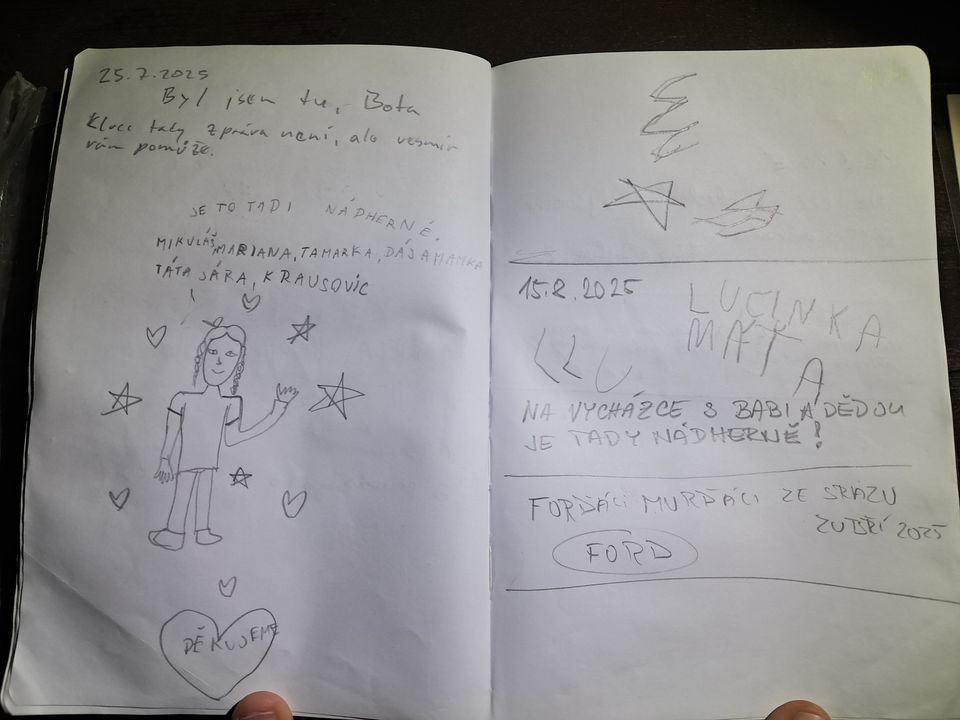 25.7.2025
Byl jsem tu, Bota
Kluci tady zpráva není, ale vesmír
vám pomůže.
JE TO TADI NÁDHERNĚ.
MIKULÁŠ, MARIANA, TAMARKA, DÁŠA MAMKA
TÁTA SÁRA, KRAUSOVIC
DĚKUJEME
15.8.2025
LUCINKA
MÁŤA
LLU
NA VYCHÁZCE S BABI A DĚDOU
JE TADY NÁDHERNĚ!
FORĎÁCI MURĎÁCI ZE SRAZU
ZUBŘÍ 2025
FORD